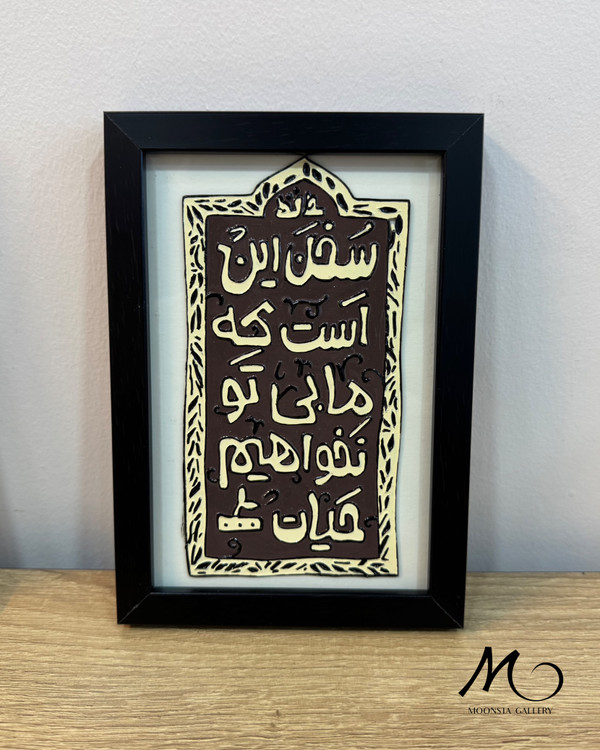 سُخَن اینْ
اَست که
ما بی تَو
نَخواهیم
حَیات
MOONSIA GALLERY